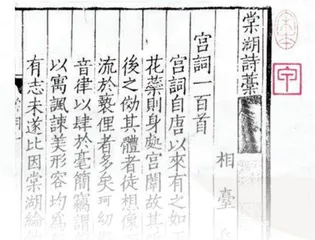 棠湖詩藁
相臺
宮詞一百首
宮詞自唐以來有之如
花蘂則身處宮闈故其
後之傚其體者徒想像
流於褻俚者多矣珂幼
音律以肆於毫簡竊謂
以寓諷諫美形容均爲
有志未遂比因棠湖綸